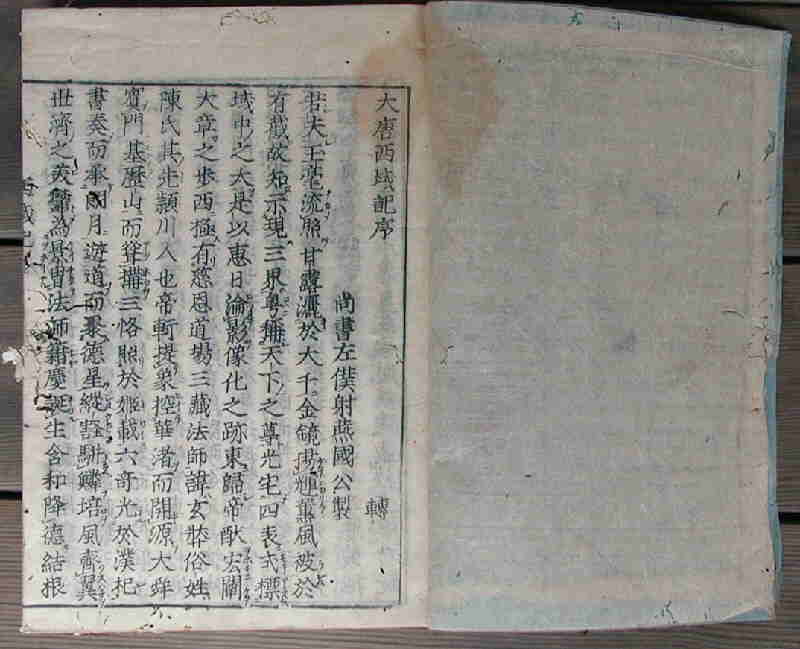 大唐西域記序
轉
尚書左僕射燕國公製
若夫玉毫流照甘露灑於大千金鏡揚輝薫風被於
有截故知示現三界粵稱天下之尊光宅四表式標
域中之大是以惠日淪影像化之跡東歸帝猷宏闡
大章之步西極有慈恩道場三藏法師諱玄奘俗姓
陳氏其先潁川人也帝軒提象控華渚而開源大舜
賓門基歷山而聳搆三恪照於姬載六奇光於漢祀
書奏而承朗月遊道而聚德星縱壑駢鱗培風齊翼
世濟之美鬱為景冑法師籍慶誕生含和降德結根
西域記序